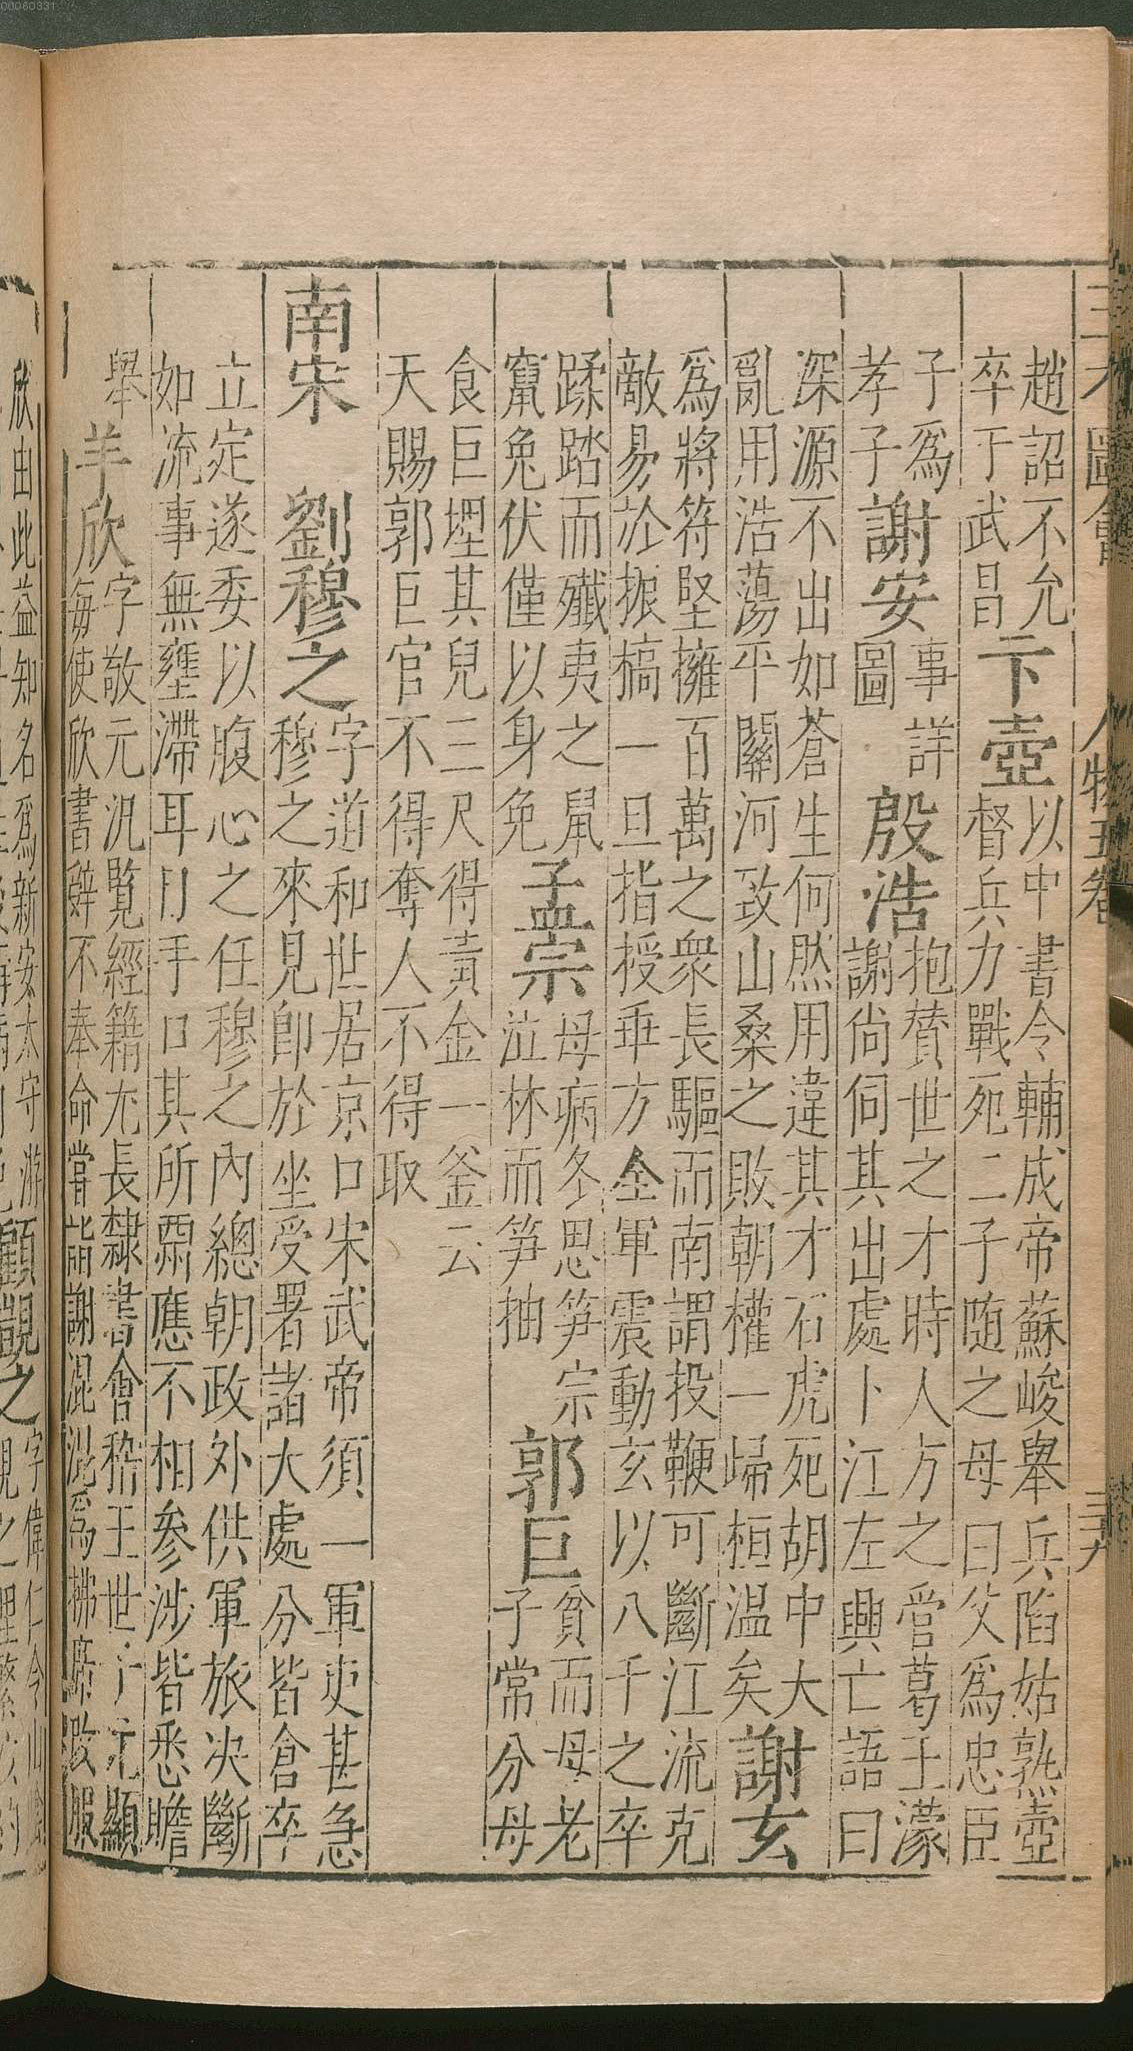 趙詔不允
卒于武昌
卞壺
以中書令輔成帝蘇峻舉兵陷姑熟壺
督兵力戰死二子随之母曰父爲忠臣
子爲
孝子
謝安
事詳
圖
殷浩
抱贊世之才時人方之管葛王濛
謝尚伺其出處卜江左興亡語曰
深源不出如蒼生何然用違其才石虎死胡中大
亂用浩蕩平關河致山桑之敗朝權一歸桓温矣
謝玄
爲將符堅擁百萬之衆長驅而南謂投鞭可斷江流克
敵易於振槁一旦指授垂方全軍震動玄以八千之卒
蹂踏而殲夷之鼠
竄兔伏僅以身免
孟宗
母病冬思笋宗
泣林而笋抽
郭巨
貧而母老
子常分母
食巨埋其兒三尺得黃金一釜云
天賜郭巨官不得奪人不得取
南宋
劉穆之
字道和世居京口宋武帝須一軍吏甚急
穆之來見卽於坐受署諸大處分皆倉卒
立定遂委以腹心之任穆之內總朝政外供軍旅决斷
如流事無壅滯耳目手口其所需應不相參涉皆悉贍
舉
羊欣
字敬元汎覽經籍尤長隸書會稽王世子元顯
每使欣書辭不奉命嘗詣謝混混爲拂席改服
三才圖會
人物五卷
三九
欣由此益知名爲新安太守游
顧覬之
字偉仁令山陰